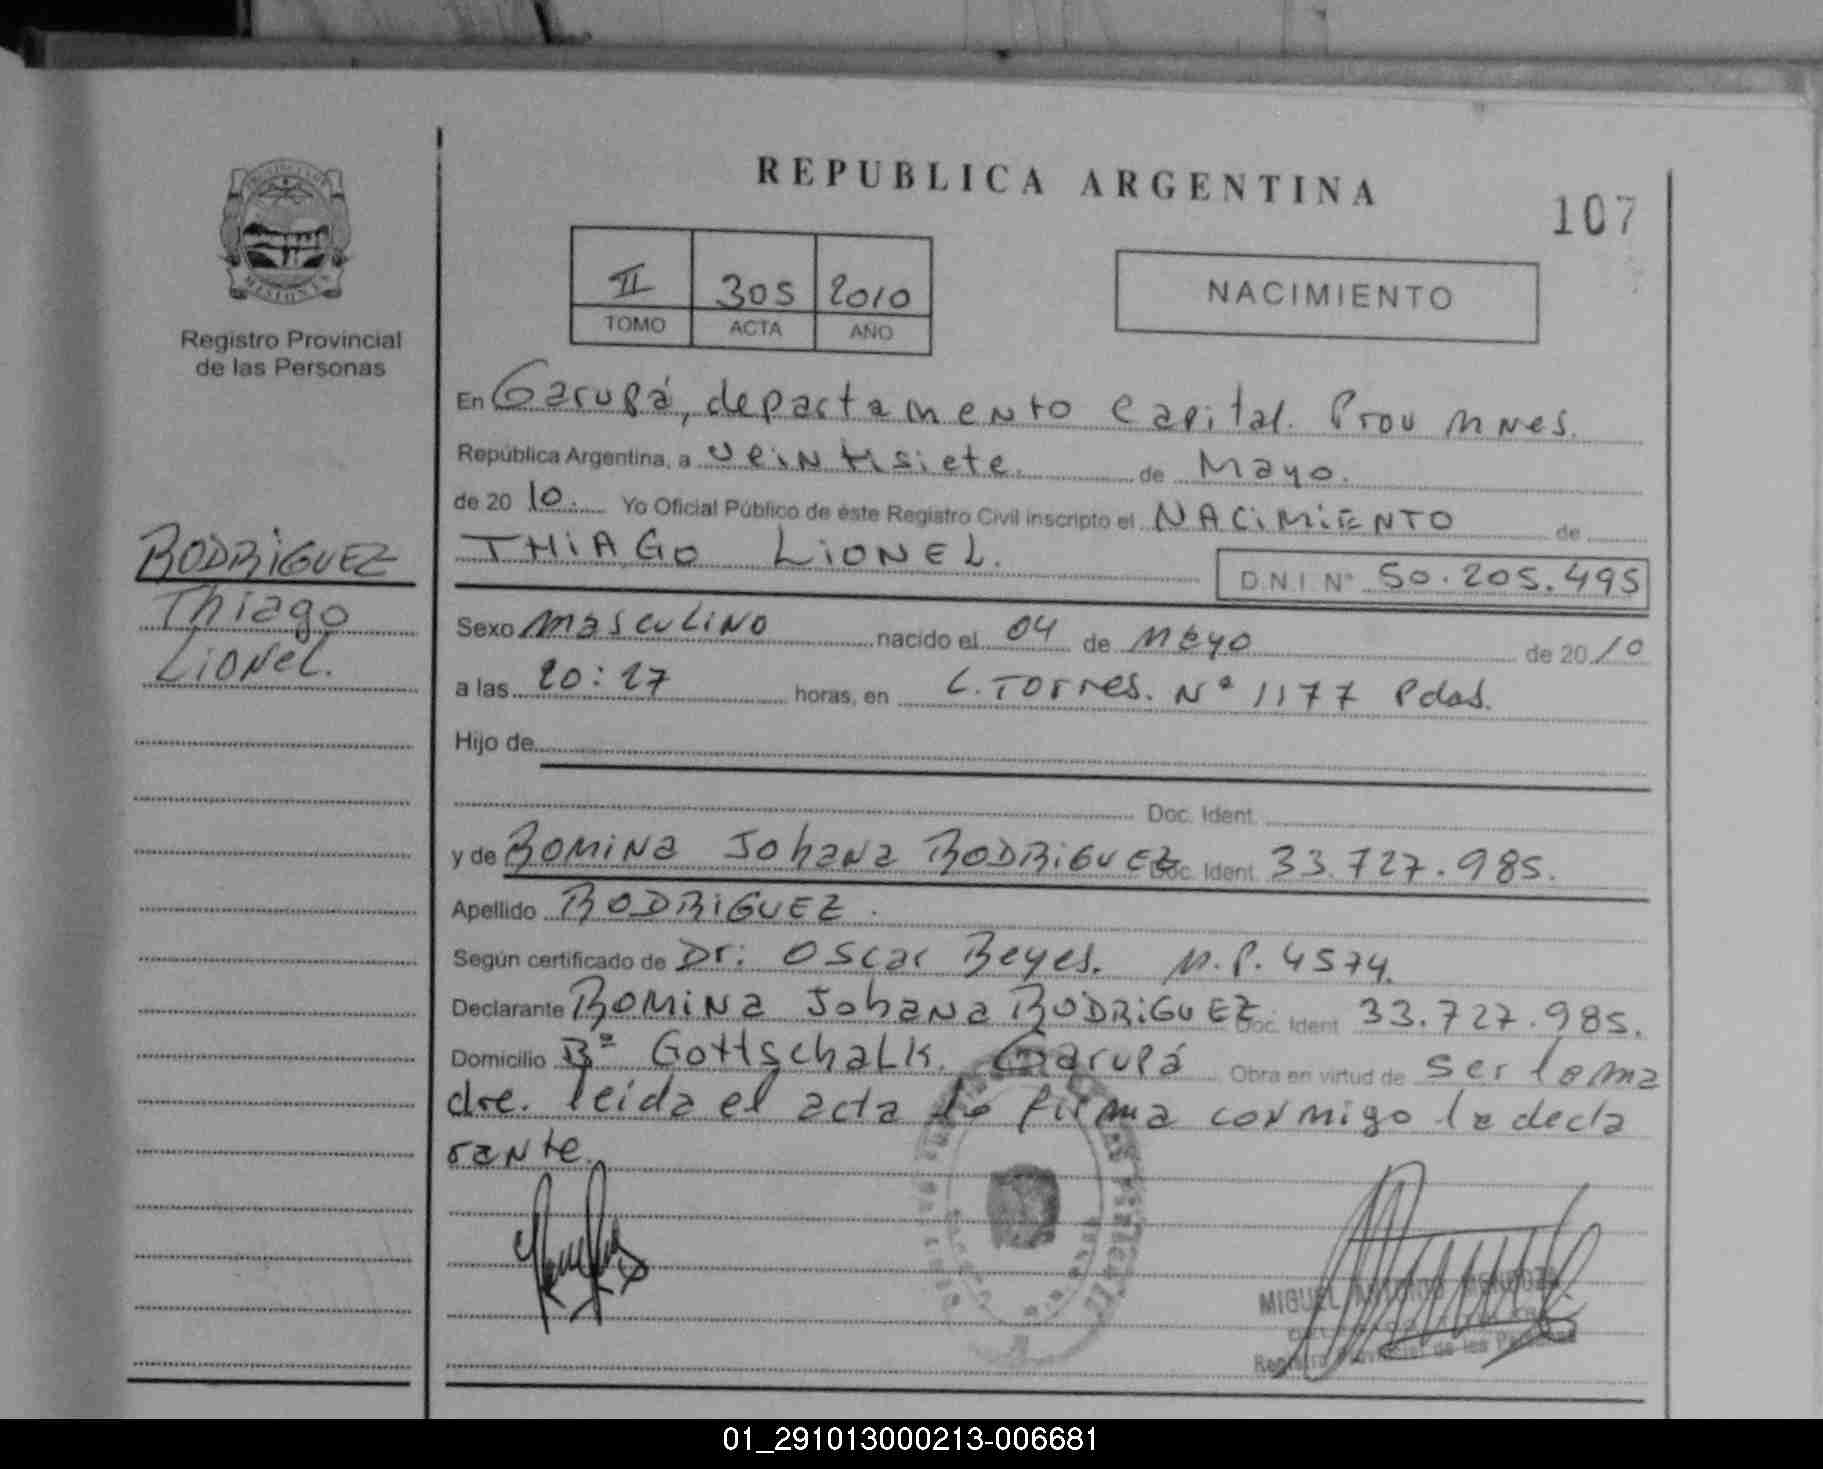 REPUBLICA ARGENTINA
107
II 305 2010
TOMO ACTA AÑO
NACIMIENTO
MISIONES
Registro Provincial
de las Personas
RODRIGUEZ
Thiago
Lionel.
En Garupá, departamento Capital. Prov Mnes.
República Argentina, a veintisiete. de Mayo.
de 20 10. Yo Oficial Público de éste Registro Civil inscripto el NACIMIENTO de
THIAGO LIONEL.
D.N.I. Nº 50.205.495
Sexo Masculino nacido el 04 de Mayo de 20 10
a las 20:27 horas, en L. Torres. Nº 1177 Pdas.
Hijo de
Doc. Ident.
y de Romina Johana RODRIGUEZ Doc. Ident. 33.727.985.
Apellido RODRIGUEZ.
Según certificado de Dr: Oscar Reyes. M.P. 4574.
Declarante Romina Johana RODRIGUEZ. Doc. Ident 33.727.985.
Domicilio Bº Gottschalk. Garupá Obra en virtud de ser la ma
dre. leida el acta la firma conmigo la decla
rante.
MIGUEL ANTONIO MENDOZA
Registro Provincial de las Personas
01_291013000213-006681